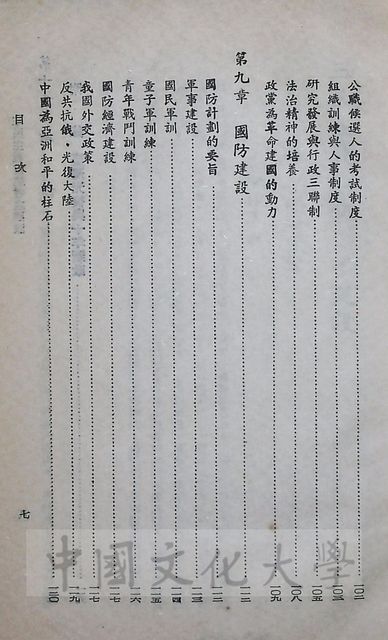 公職候選人的考試制度 一〇二
組織訓練與人事制度 一〇三
研究發展與行政三聯制 一〇五
法治精神的培養 一〇八
政黨為革命建國的動力 一〇九
第九章 國防建設 一一二
國防計劃的要旨 一一二
軍事建設 一一三
國民軍訓 一一四
童子軍訓練 一一五
青年戰鬥訓練 一一六
國防經濟建設 一一七
我國外交政策 一一七
反共抗俄・光復大陸 一一九
中國為亞洲和平的柱石 一二〇
目次
七
中國文化大學